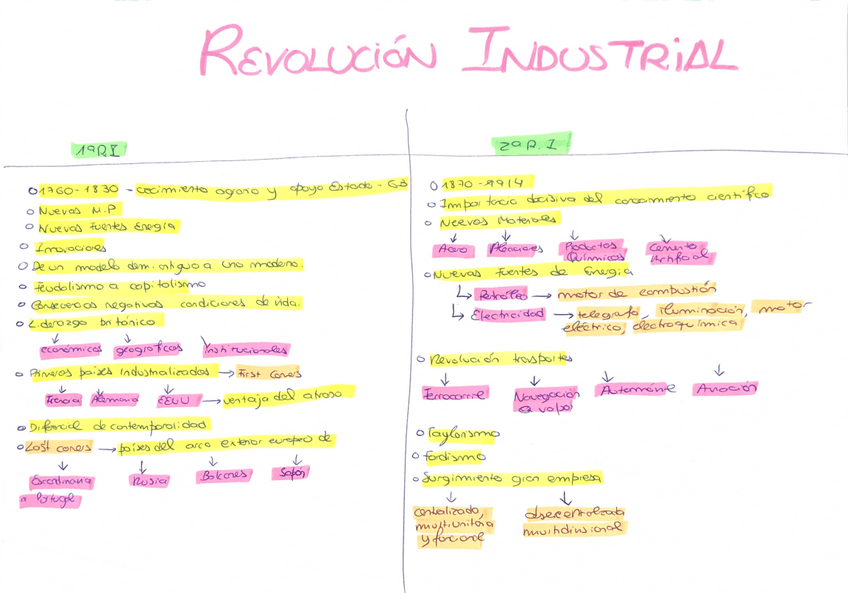 REVOLUCIÓN INDUSTRIAL
1ª R.I
1760-1830 - crecimiento agrario y apoyo Estado - GB
Nuevas M.P
Nuevas Fuentes Energía
Innovaciones
De un modelo dem. antiguo a uno moderno.
Feudalismo a capitalismo
Consecuencias negativas condiciones de vida.
Liderazgo británico
económicos geográficos institucionales
Primeros países industrializados → First comers
Francia Alemania EEUU → ventaja del atraso
Diferencial de contemporalidad
Last comers → países del arco exterior europeo de
Escandinavia Rusia Balcanes Japón
Portugal
2ª R.I
1870-1914
Importancia decisiva del conocimiento científico
Nuevos Materiales
Acero Aleaciones Productos Químicos Cemento Artificial
Nuevas Fuentes de Energía
Petróleo → motor de combustión
Electricidad → telegrafo, iluminación, motor
eléctrico, electroquímica
Revolución transportes
Ferrocarril Navegación a vapor Automóvil Aviación
Taylorismo
Fordismo
Surgimiento gran empresa
centralizada, multiunitaria y funcional
descentralizada multidivisional